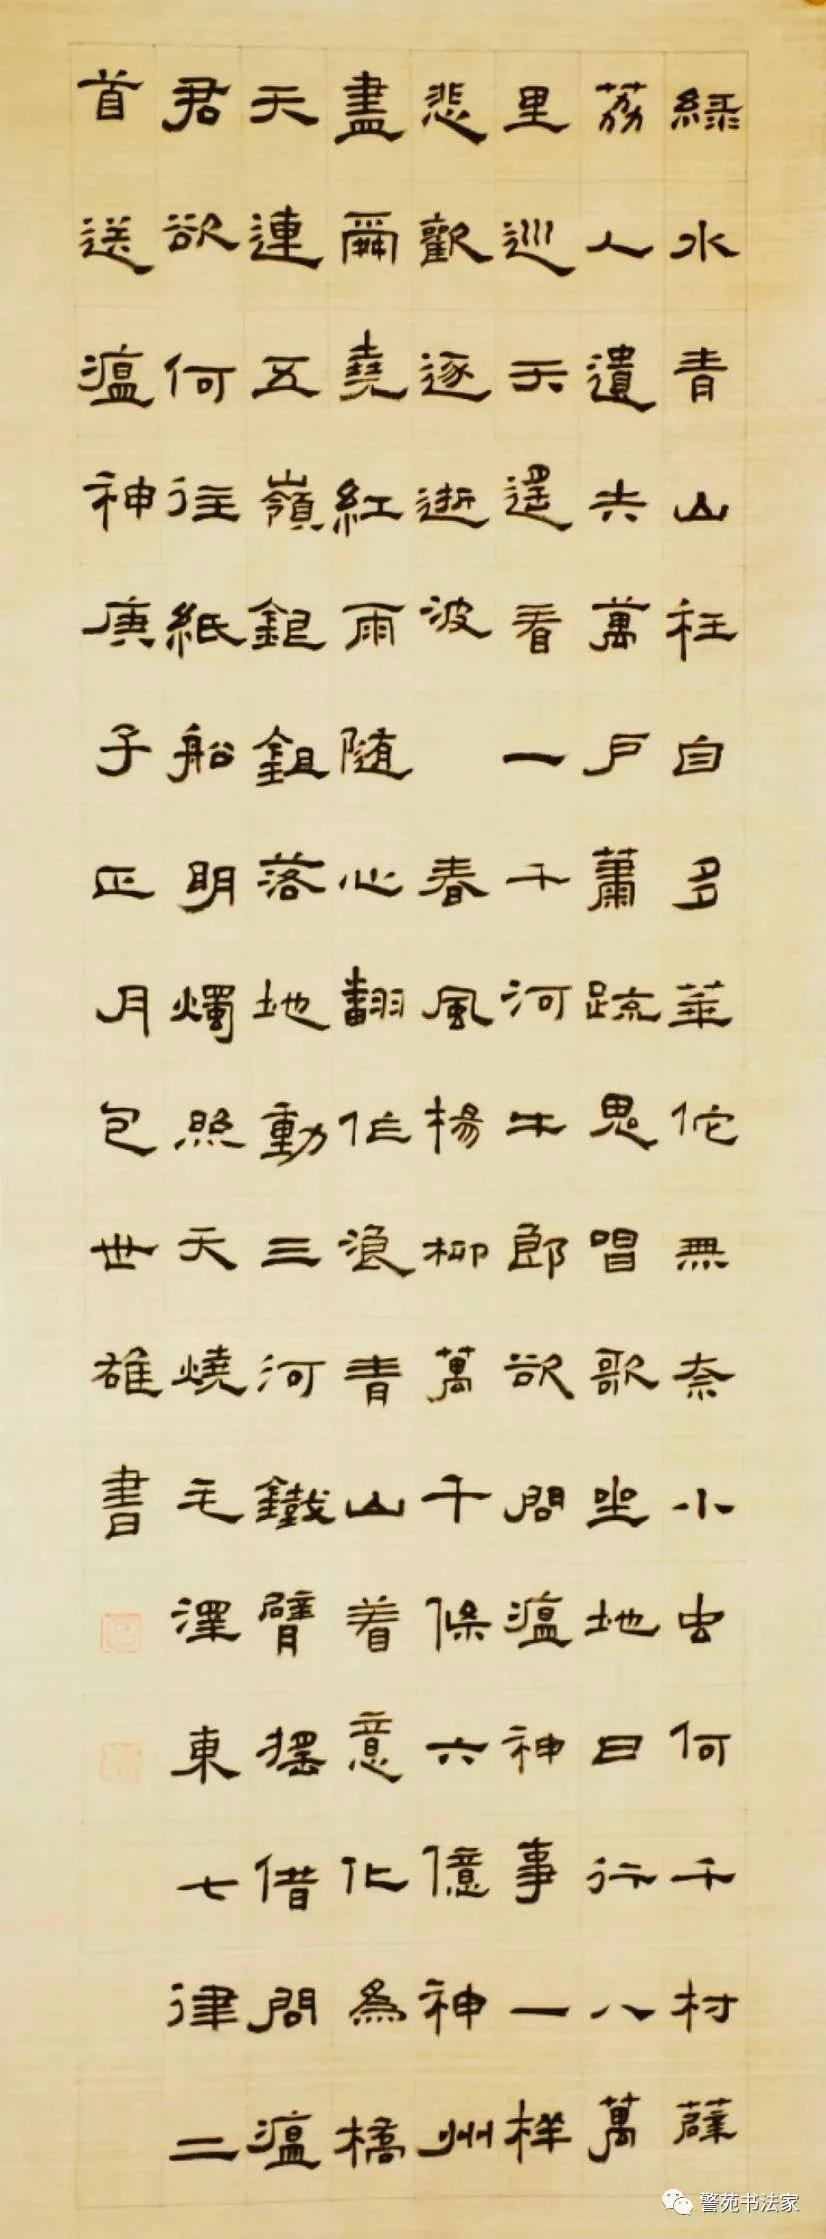 綠水青山枉自多華佗無奈小虫何千村薜
荔人遺矢萬戶蕭疏鬼唱歌坐地日行八萬
里巡天遥看一千河牛郎欲問瘟神事一樣
悲歡逐逝波 春風楊柳萬千條六億神州
盡舜堯紅雨隨心翻作浪青山着意化為橋
天連五嶺銀鉏落地動三河鐵臂搖借問瘟
君欲何往紙船明燭照天燒毛澤東七律二
首送瘟神庚子正月包世雄書
警苑书法家